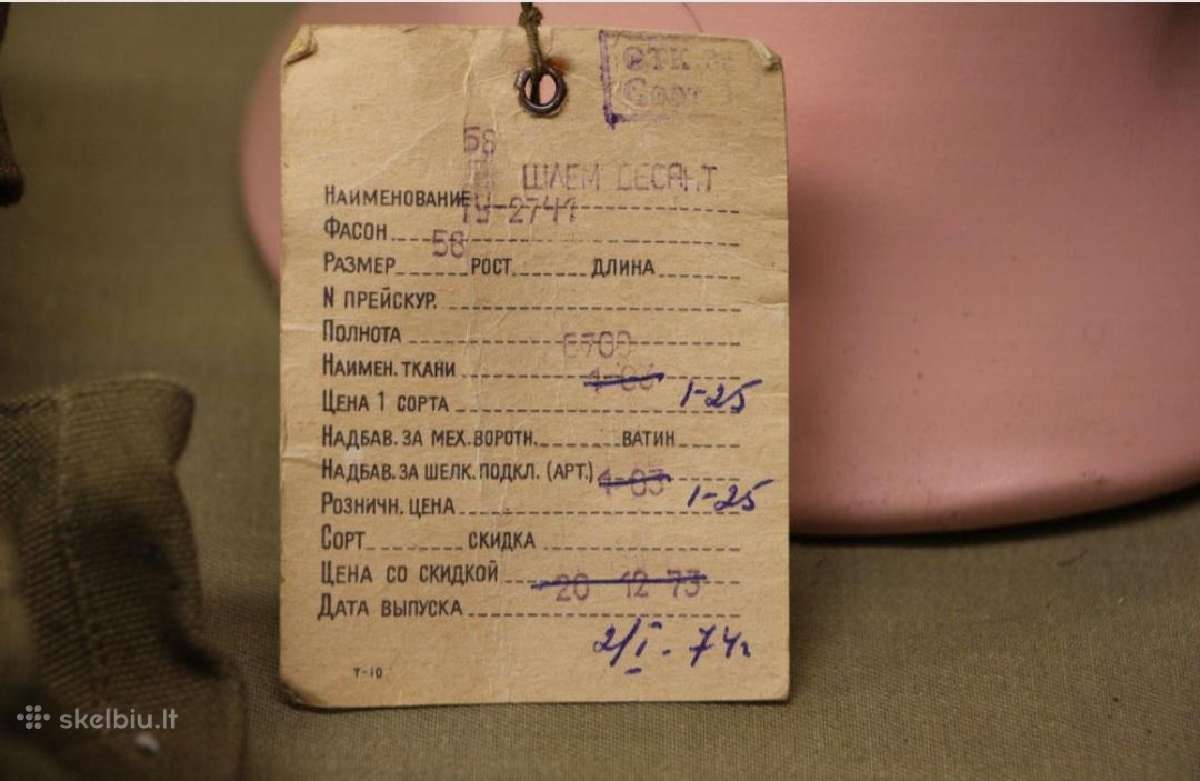 ОТК
Сорт
58
ШЛЕМ ДЕСАНТ
НАИМЕНОВАНИЕ
ТУ-2741
ФАСОН
58
РАЗМЕР РОСТ ДЛИНА
N ПРЕЙСКУР.
ПОЛНОТА
6700
НАИМЕН. ТКАНИ
1-25
ЦЕНА 1 СОРТА
НАДБАВ. ЗА МЕХ. ВОРОТН. ВАТИН
НАДБАВ. ЗА ШЕЛК. ПОДКЛ. (АРТ.)
1-03 1-25
РОЗНИЧН. ЦЕНА
СОРТ СКИДКА
ЦЕНА СО СКИДКОЙ
20 12 73
ДАТА ВЫПУСКА
2/I-74г
Т-10
skelbiu.lt